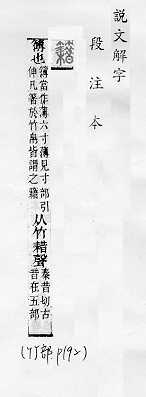 說文解字
段注本
籍
簿也
簿當作薄六寸薄見寸部引
伸凡箸於竹帛皆謂之籍
从竹耤聲
秦昔切古
音在五部
(竹部 P192)